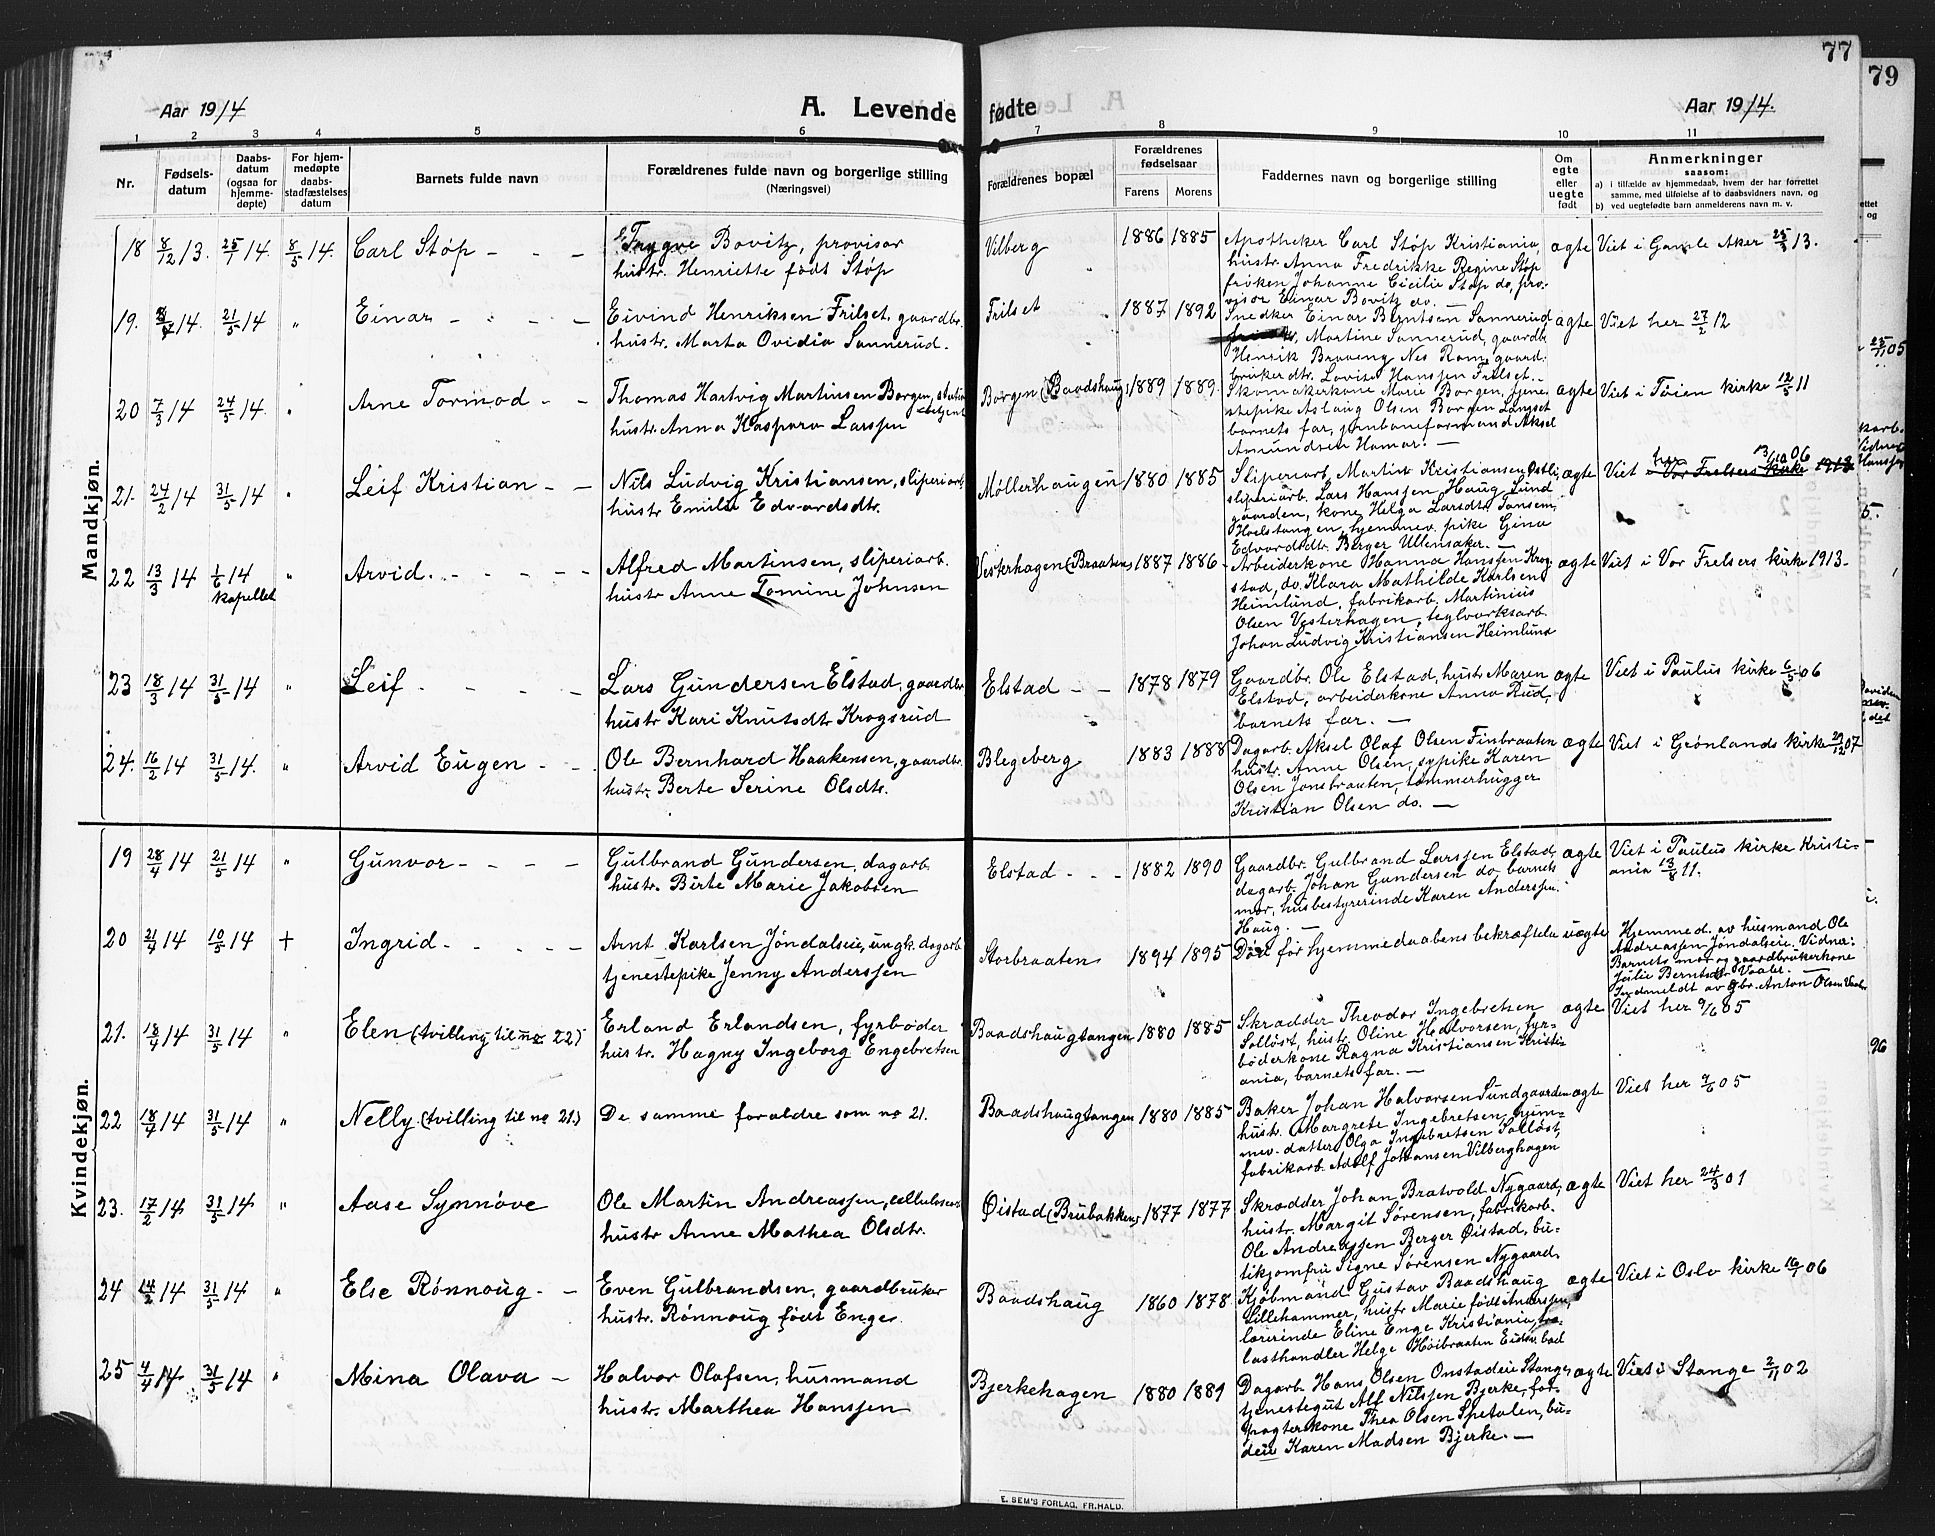 77
79
Aar 1914
A. Levende fødte
Aar 1914.
1 2 3 4 5 6 7 8 9 10 11
Nr.
Fødsels-
datum
Daabs-
datum
(ogsaa for
hjemme-
døpte)
For hjem-
medøpte
daabs-
stadfæstelses
datum
Barnets fulde navn
Forældrenes fulde navn og borgerlige stilling
(Næringsvei)
Forældrenes bopæl
Forældrenes
fødselsaar
Farens Morens
Faddernes navn og borgerlige stilling
Om
egte
eller
uegte
født
Anmerkninger
saasom:
a) i tilfælde av hjemmedaab, hvem der har forrettet
samme, med tilføielse af to daabsvidners navn, og
b) ved uegtefødte barn anmelderens navn m. v.
Mandkjøn.
18 8/12 13. 25/1 14. 8/5 14. Carl Støp - - -
Trygve Bovitz, provisor
hustr. Henriette født Støp
Vilberg 1886 1885
Apotheker Carl Støp Kristiania,
hustr. Anna Fredrikke Regine Støp
frøken Johanne Cicilie Støp do, pro-
visor Einar Bovitz do. —
ægte Viet i Gamle Aker 25/3 13.
19. 14. 21/5 14 " Einar - - - -
Eivind Henriksen Frilset, gaardbr.
hustr. Marta Ovidia Sannerud.
Frilset 1887 1892
Snedker Einar Berntsen Sannerud,
Martine Sannerud, gaardbr.
Henrik Braaeng Nes Rom, gaard-
brukerdtr. Lovise Hanssen Frilset. —
ægte Viet her 27/2 12
20 7/3 14 24/5 14. " Arne Tormod - -
Thomas Hartvig Martinsen Borgen, stations-
betjent
hustr. Anna Kaspara Larssen
Borgen (Baadshaug) 1889 1889.
Skomakerkone Marie Borgen, tjene-
stepike Aslaug Olsen Borgen Langset
barnets far, jernbaneformand Aksel
Amundsen Hamar. —
ægte Viet i Tøien kirke 12/5 11
21. 24/2 14 31/5 14 " Leif Kristian - -
Nils Ludvig Kristiansen, sliperiarb.
hustr Emilie Edvardsdtr.
Møllerhaugen 1880 1885
Sliperiarb. Martin Kristiansen Østli,
sliperiarb. Lars Hanssen Haug Lund-
gaarden, kone Helga Larsdtr Tansem,
Holstangen, hjemmev. pike Gina
Edvardsdtr. Berger Ullensaker. —
ægte Viet her 13/10 06 Vor Frelsers kirke 1913
22 13/3 14 1/6 14
kapellet " Arvid. - - - -
Alfred Martinsen, sliperiarb.
hustr Anne Tomine Johnsen
Vesterhagen (Braaten) 1887 1886
Arbeiderkone Hanna Hanssen Krog-
stad, do. Klara Mathilde Karlsen
Heimlund, fabrikarb. Martinius
Olsen Vesterhagen, teglverksarb.
Johan Ludvig Kristiansen Heimlund
ægte Viet i Vor Frelsers kirke 1913.
23 18/3 14 31/5 14 " Leif - - - -
Lars Gundersen Elstad, gaardbr.
hustr Kari Knutsdtr Krogsrud
Elstad - - 1878 1879
Gaardbr. Ole Elstad, hustr. Maren
Elstad, arbeiderkone Anna Rud,
barnets far. —
ægte Viet i Paulus kirke 6/5 06
24. 16/2 14 31/5 14. " Arvid Eugen - -
Ole Bernhard Haakensen, gaardbr.
hustr. Berte Serine Olsdtr.
Blegeberg 1883 1888
Dagarb. Aksel Olaf Olsen Finbraaten
hustr. Anne Olsen, sypike Karen
Olsen Jonsbraaten, tømmerhugger
Kristian Olsen do. —
ægte Viet i Grønlands kirke 29/12 07
Kvindekjøn.
19 28/4 14 21/5 14 " Gunvor - - - -
Gulbrand Gundersen, dagarb.
hustr. Birte Marie Jakobsen
Elstad - - - 1882 1890
Gaardbr. Gulbrand Larssen Elstad,
dagarb. Johan Gundersen do, barnets
mor, husbestyrerinde Karen Anderssen
Haug. —
ægte Viet i Paulus kirke Kristi-
ania 13/8 11.
20 21/4 14 10/5 14 + Ingrid - - - - -
Arnt Karlsen Jøndalseie, ungk. dagarb.
tjenestepike Jenny Anderssen
Storbraaten 1894 1895
Død før hjemmedaabens bekræftelse
uægte Hjemmed. av husmand Ole
Andreassen Jøndalseie. Vidner:
Barnets mor og gaardbrukerkone
Julie Berntsdtr Vaaler. —
Indmeldt av gbr. Anton Olsen
21. 18/4 14 31/5 14 " Elen (tvilling til no. 22)
Erland Erlandsen, fyrbøder
hustr. Hagny Ingeborg Engebretsen
Baadshaugtangen 1880 1885
Skrædder Theodor Ingebretsen
Solløst, hustr. Oline Halvorsen, fyr-
bøderkone Ragna Kristiansen Kristi-
ania, barnets far. —
ægte Viet her 9/6 05
22 18/4 14 31/5 14 " Nelly (tvilling til no 21.)
De samme forældre som no 21.
Baadshaugtangen 1880 1885
Baker Johan Halvorsen Sundgaarden
hustr. Margrete Ingebretsen, hjem-
mev. datter Olga Ingebretsen Solløst,
fabrikarb. Adolf Johansen Vilberghagen
ægte Viet her 9/6 05
23. 17/2 14 31/5 14 " Aase Synnøve
Ole Martin Andreassen,
hustr. Anne Mathea Olsdtr.
Øistad (Brubakken) 1877 1877
Skrædder Johan Bratvold Nygaard,
hustr. Margit Sørensen, fabrikarb.
Ole Andreassen Berger Øistad, bu-
tikjomfru Signe Sørensen Nygaard.
ægte Viet her 24/3 01
24 14/2 14 31/5 14 " Else Rønnoug - -
Even Gulbrandsen, gaardbruker
hustr. Rønnoug født Enger
Baadshaug 1860 1878
Kjøbmand Gustav Baadshaug
Lillehammer, hustr Marie født Anderssen,
lærerinde Eline Enge Kristiania, tra-
lasthandler Helge Høibraaten Eidsv. bad
ægte Viet i Oslo kirke 16/1 06
25 4/4 14 31/5 14 " Mina Olava -
Halvor Olafsen, husmand
hustr. Marthea Hanssen
Bjerkehagen 1880 1881
Dagarb. Hans Olsen Onstadeie Stange,
tjenestegut Alf Nilssen Bjerke, for-
pagterkone Thea Olsen Spetalen, bu-
deie Karen Madsen Bjerke. —
ægte Viet i Stange 2/11 02
E. SEM'S FORLAG, FR.HALD.